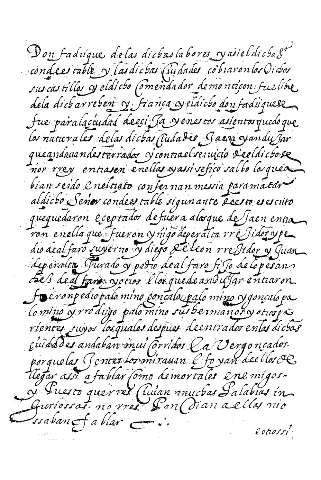 Don fadrique de las dichas labores, y asi el dicho Sr
condeestable y las dichas Ciudades cobraron los dichos
sus castillos y el dicho Comendador de montiçon fue libre
de la dicha rrehen y fiança y el dicho don fadrique se
fue para la çiudad de eçija y en estos asientos quedo que
los naturales de las dichas Ciudades Jaen y andujar
que andauan desterrados y contra el seruiçio del dicho se
nor rrey entrasen en ellas y asi se fiço salbo los que a
bian seido en el trato con fernan messia para matar
al dicho Señor condeestable sigun ante desto es escrito
que quedaron eceptados de fuera a los que de Jaen entra
ron en ella que fueron y rregidor y pe
dio de alfaro su yerno y diego de leon rregidor y Juan
Jurado y pedro de alfaro fijo de lope san
de alfaro y otros. Los que de andujar entraron
fueron pedro palomino gonçalo palomino y gonçalo pa
lomino y rrodrigo palomino sus hermanos y otros pa
rientes suyos los quales despues de entrados en las dichas
çiudades andaban mui corridos y a Vergonçados
porque las Jentes los mirauan e fo yan dellos de
llegar assi a fablar Como de mortales enemigos
y Puesto que rres Ciuian muchas Palabras in
Juriossas no rres Pondian a ellas ni o
ssaban fablar